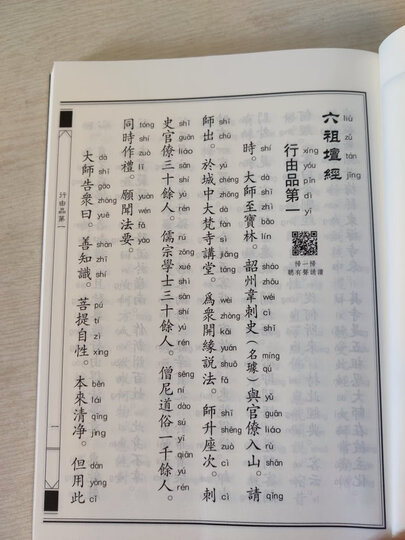 六祖壇經
liù zǔ tán jīng
行由品第一
xíng yóu pǐn dì yī
掃一掃
聽有聲誦讀
時。大師至寶林。韶州韋刺史（名璩）與官僚入山。請
shí dà shī zhì bǎo lín sháo zhōu wéi cì shǐ míng qú yǔ guān liáo rù shān qǐng
師出。於城中大梵寺講堂。爲衆開緣説法。師升座次。刺
shī chū yú chéng zhōng dà fàn sì jiǎng táng wèi zhòng kāi yuán shuō fǎ shī shēng zuò cì cì
史官僚三十餘人。儒宗學士三十餘人。僧尼道俗一千餘人。
shǐ guān liáo sān shí yú rén rú zōng xué shì sān shí yú rén sēng ní dào sú yī qiān yú rén
同時作禮。願聞法要。
tóng shí zuò lǐ yuàn wén fǎ yào
大師告衆曰。善知識。菩提自性。本來清净。但用此
dà shī gào zhòng yuē shàn zhī shí pú tí zì xìng běn lái qīng jìng dàn yòng cǐ
行由品第一
一